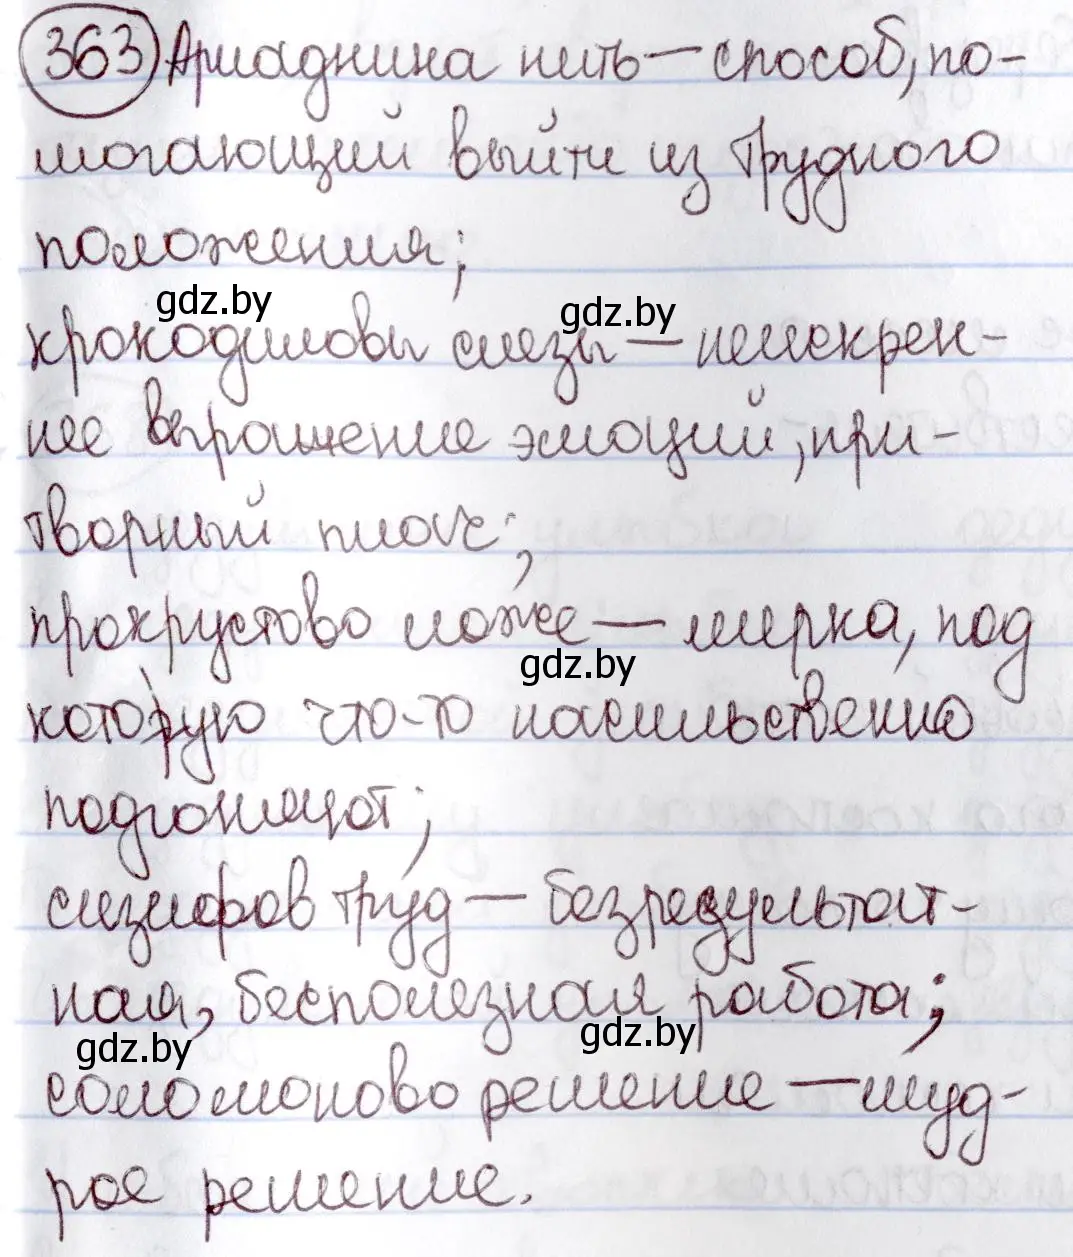 363 Ариаднина нить — способ, по-
могающий выйти из трудного
положения;
gdz.by
gdz.by
крокодиловы слезы — неискрен-
нее выражение эмоций, при-
творный плач;
прокрустово ложе — мерка, под
gdz.by
которую что-то насильственно
подгоняют;
сизифов труд — безрезультат-
ная, бесполезная работа;
gdz.by
gdz.by
соломоново решение — муд-
рое решение.